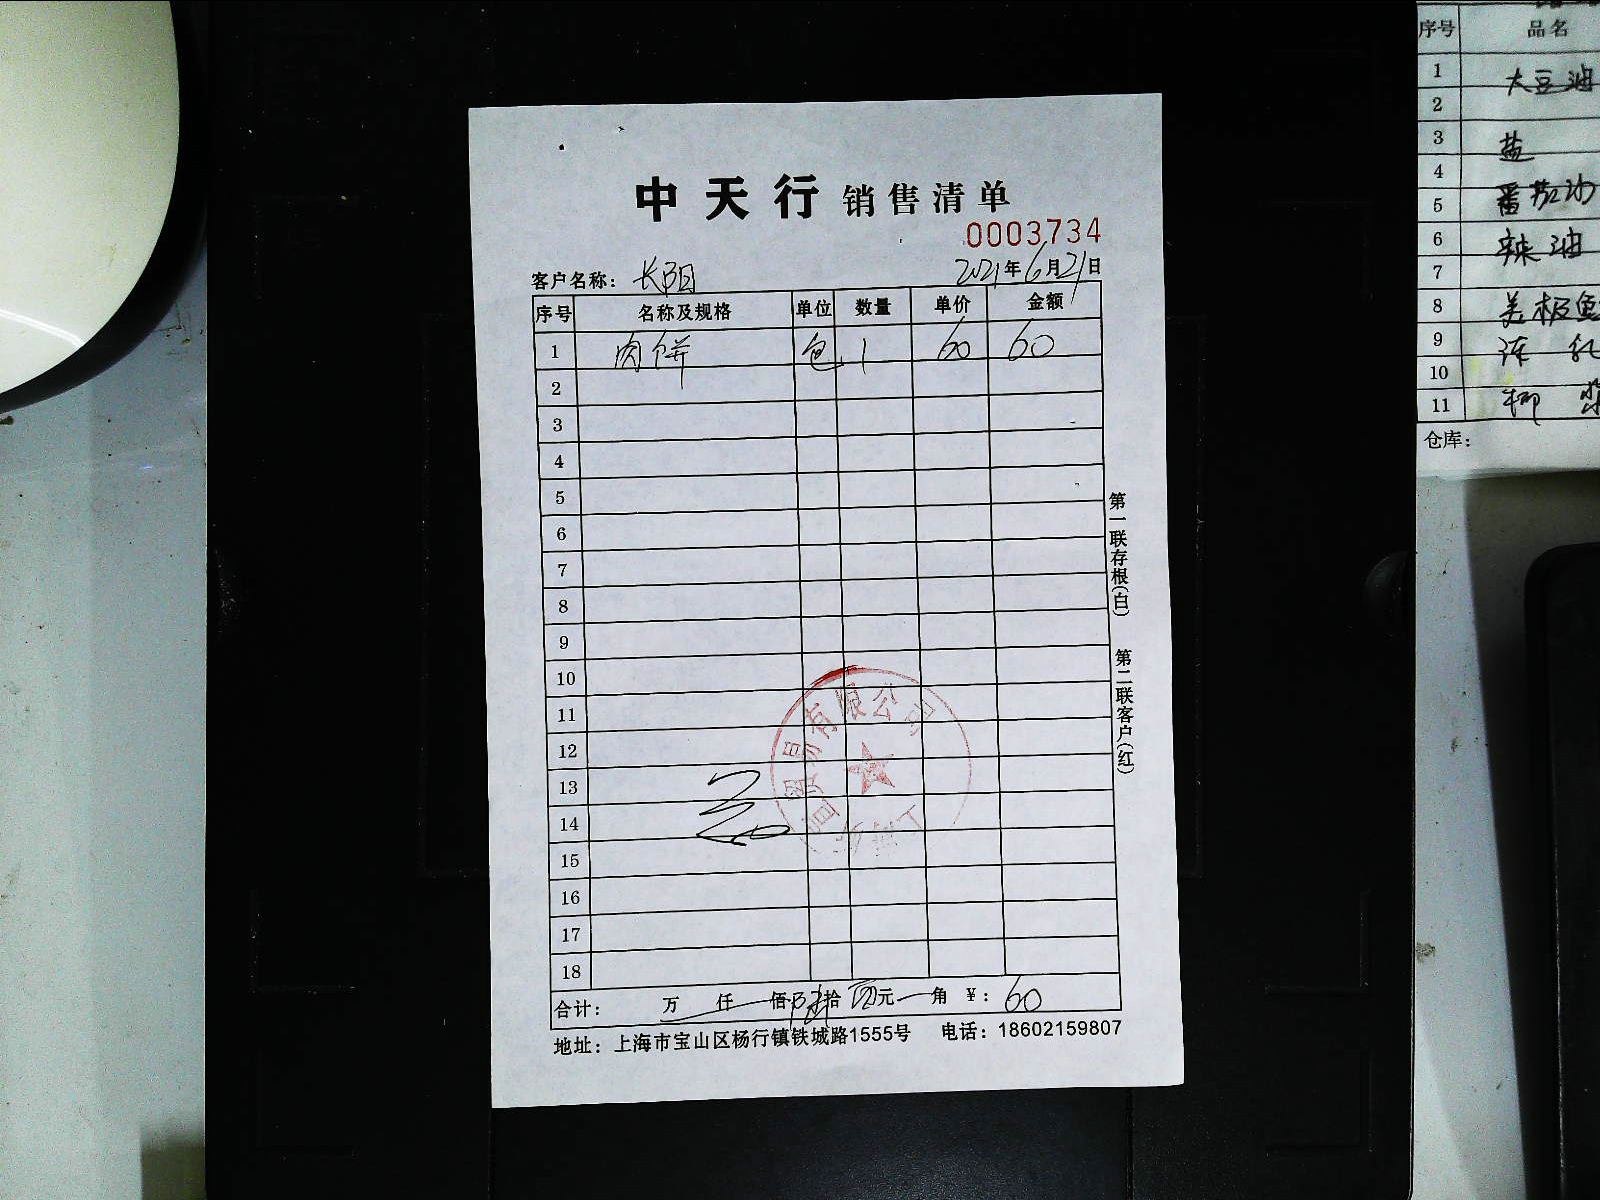 中天行 销售清单
0003734
客户名称： 长阳 2021年6月21日
序号 名称及规格 单位 数量 单价 金额
1 肉饼 包 1 60 60
2
3
4
5
6
7
8
9
10
11
12
13
14
15
16
17
18
合计： 万 仟 佰 陆 拾 元 角 ¥： 60
地址： 上海市宝山区杨行镇铁城路1555号 电话：18602159807
第一联存根(白)
第二联客户(红)
贸易有限公司
序号 品名
1 大豆油
2
3 盐
4
5 番茄沙
6 辣油
7
8 美极鱼
9
10
11 椰浆
仓库：